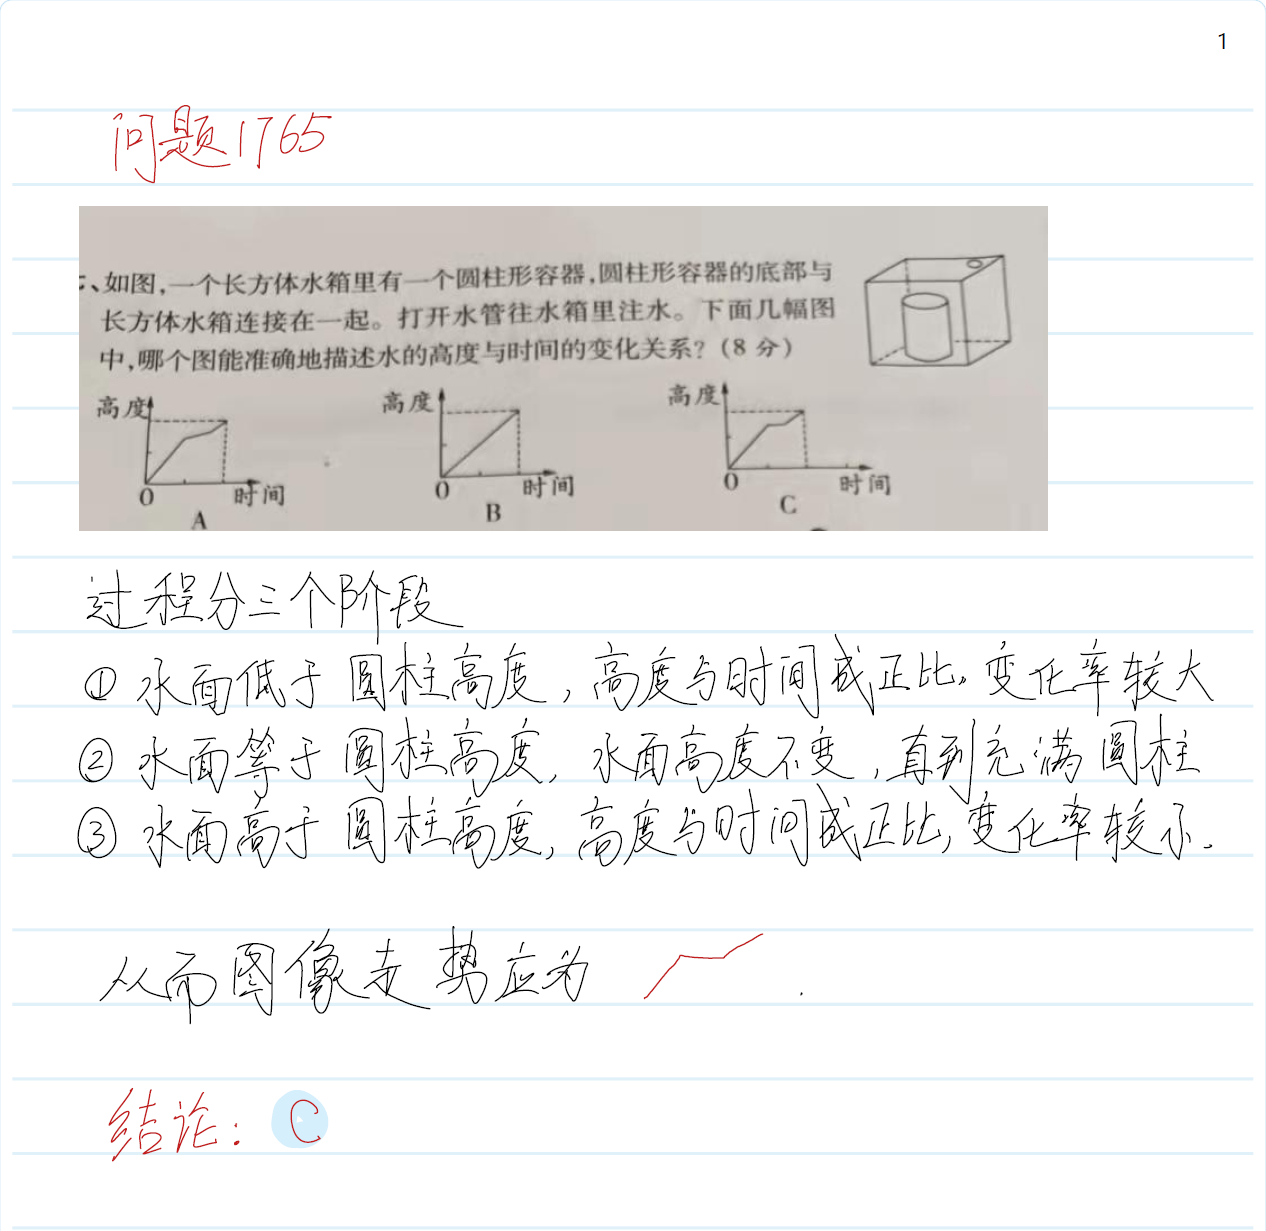 1
问题1765
、如图,一个长方体水箱里有一个圆柱形容器,圆柱形容器的底部与
长方体水箱连接在一起。打开水管往水箱里注水。下面几幅图
中,哪个图能准确地描述水的高度与时间的变化关系?(8分)
高度 高度 高度
0 时间 0 时间 0 时间
A B C
过程分三个阶段
① 水面低于圆柱高度,高度与时间成正比。变化率较大
② 水面等于圆柱高度,水面高度不变,直到充满圆柱
③ 水面高于圆柱高度,高度与时间成正比,变化率较小.
从而图像走势应为
结论: C